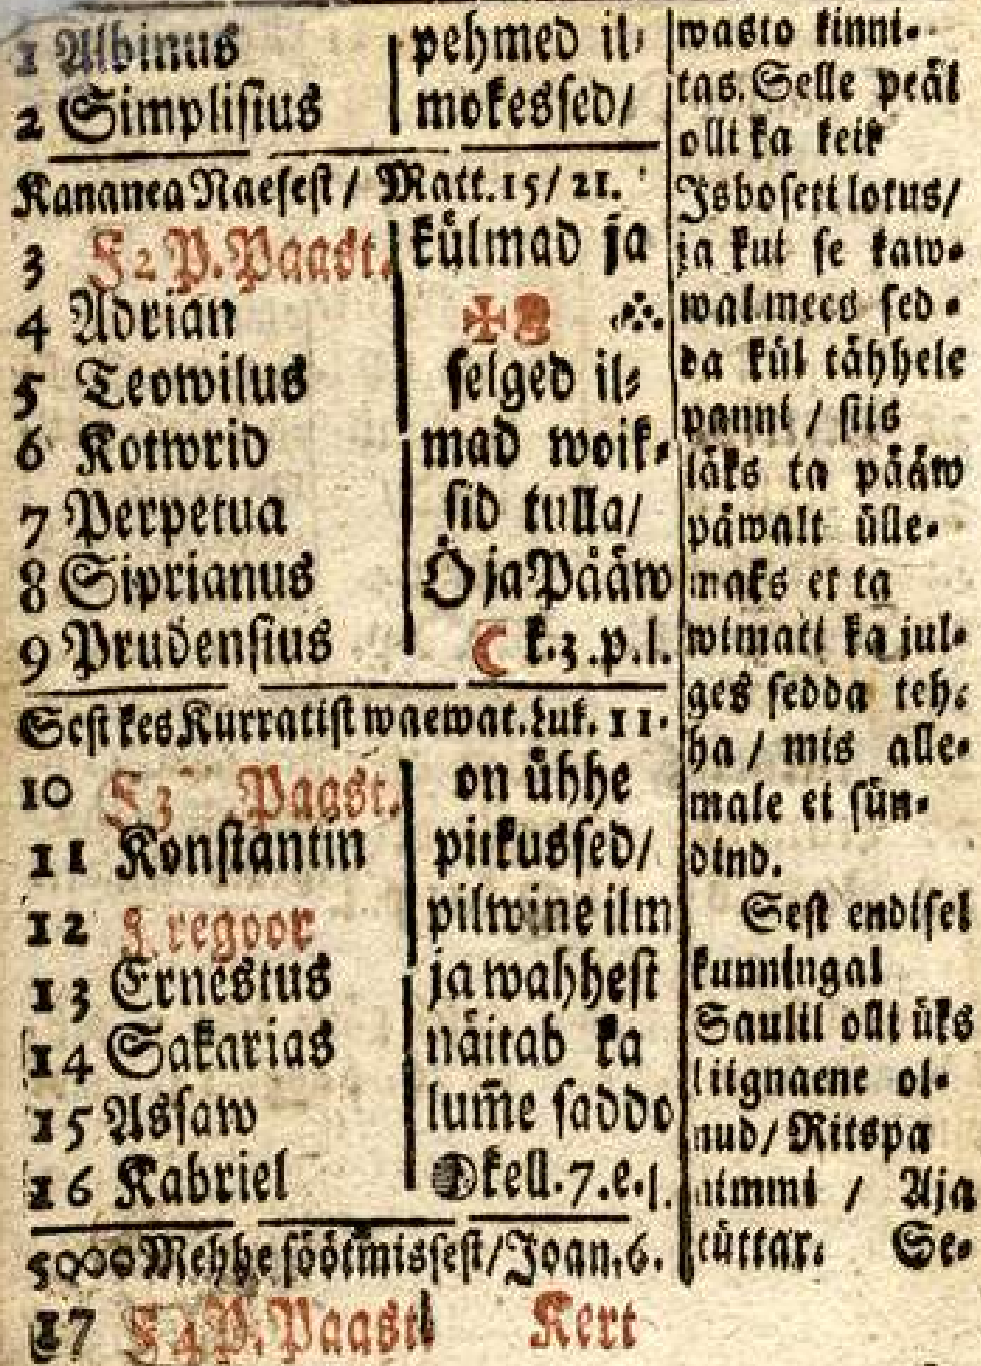 1 Albinus
2 Simplisius
Kananea Naesest / Matt. 15 / 21.
3 P. Paast.
4 Adrian
5 Teowilus
6 Kottwrid
7 Perpetua
8 Siprianus
9 Prudensius
Sest kes Kurratist waewat. Luk. 11.
10 Paast.
11 Konstantin
12 regoor
13 Ernestus
14 Sakarias
15 Assaw
16 Kabriel
5000 Mehhe söötmissest / Joan. 6.
17 P. Paast.
pehmed il-
mokessed /
külmad ja
selged il-
mad woik-
sid tulla /
Ö ja Pääw
☾ k. 3. p. l.
on ühhe
pitkussed /
pilwine ilm
ja wahhest
näitab ka
lum̄e saddo
kell. 7. e. l.
Kert
wasto kinni-
tas. Selle peäl
olli ka keik
Isboseti lotus /
ja kui se kaw-
wal mees sed-
da kül tähhele
panni / siis
läks ta pääw
päwalt ülle-
maks et ta
wimati ka jul-
ges sedda teh-
ha / mis alle-
male ei sün-
dind.
Sest endisel
kunningal
Saulil olli üks
liignaene ol-
nud / Ritspa
nimmi / Aja
tüttar. Se-